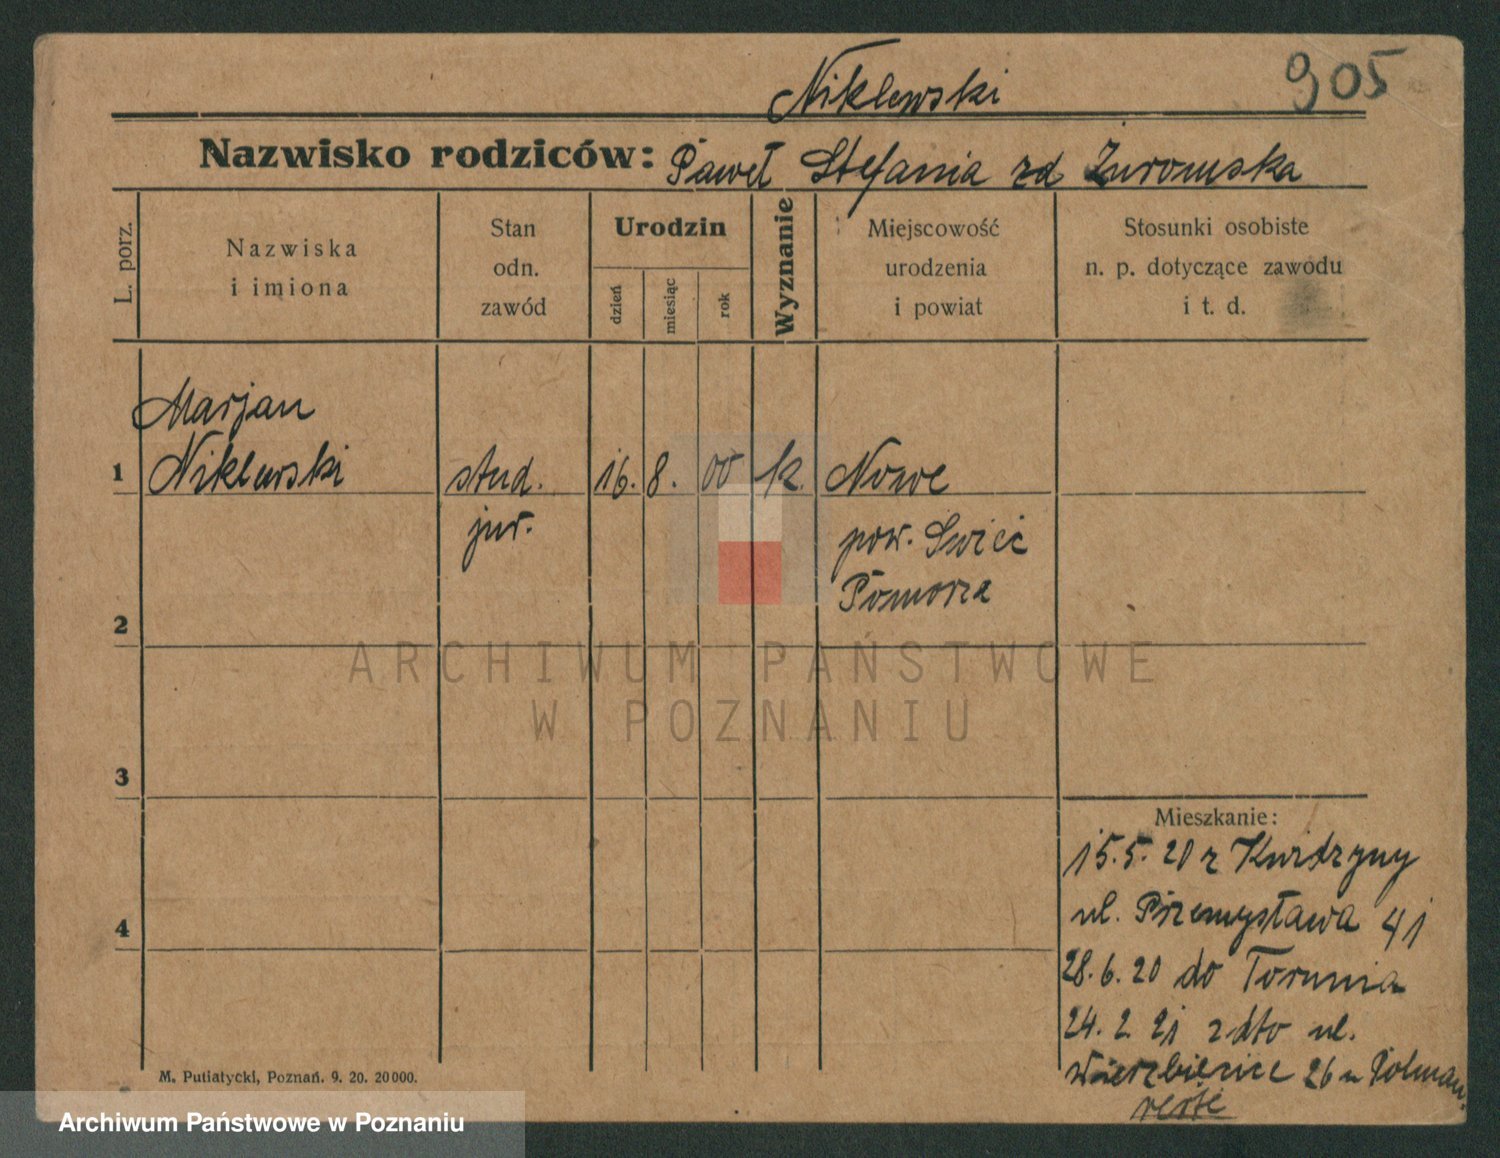 Niklewski 905
Nazwisko rodziców: Paweł Stefania zd Żuromska
L. porz.
Nazwiska
i imiona
Stan
odn.
zawód
Urodzin
dzień
miesiąc
rok
Wyznanie
Miejscowość
urodzenia
i powiat
Stosunki osobiste
n. p. dotyczące zawodu
i t. d.
Marjan
1 Niklewski stud. 16. 8. 00 k. Nowe
jur. pow. Swieć
Pomorza
2
ARCHIWUM PAŃSTWOWE
W POZNANIU
3
Mieszkanie:
15.5.20 z Kwidzyny
ul. Przemysława 41
4
28.6.20 do Torunia
24.2.21 z dto ul.
Wierzbięcice 26 u
verte
M. Putiatycki, Poznań. 9. 20. 20000.
Archiwum Państwowe w Poznaniu